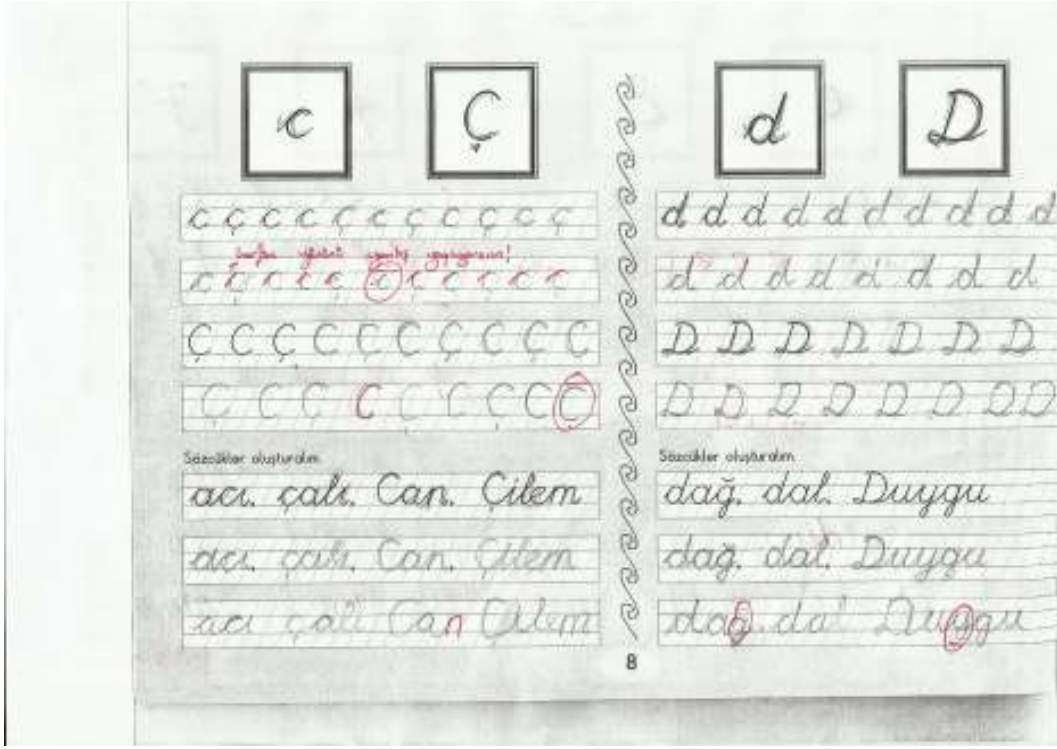 c Ç
c ç c c ç c ç c ç c ç
c ç c c ç c ç c c c c
Ç C Ç C Ç C Ç C Ç C
Ç C Ç C Ç C Ç C Ç
Sözcükler oluşturalım
acı, çalı, Can, Çilem
acı, çalı, Can, Çilem
acı çalı Can Çilem
d D
d d d d d d d d d d
d d d d d d d d
D D D D D D D
D D D D D D D D
Sözcükler oluşturalım
dağ, dal, Duygu
dağ, dal, Duygu
dağ, dal Duygu
8